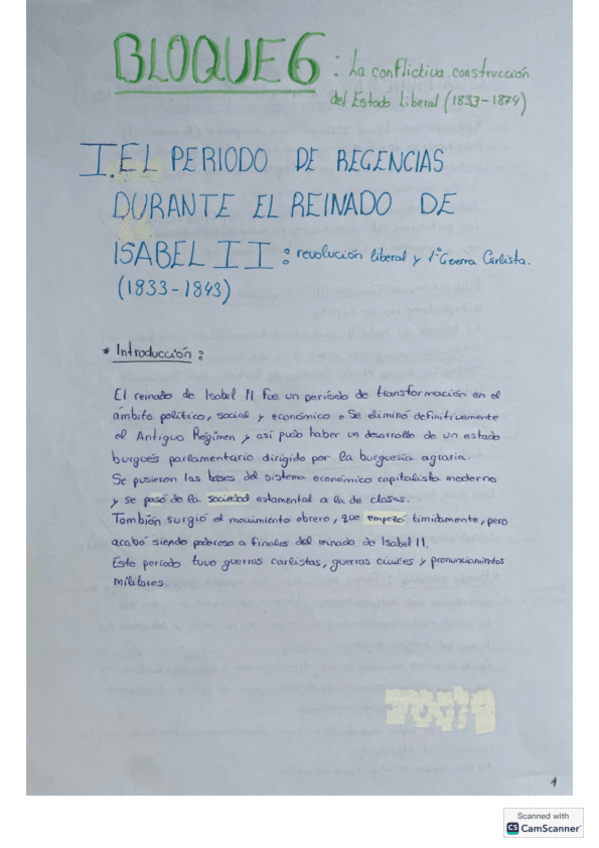 BLOQUE 6: La conflictiva construcción
del Estado Liberal (1833-1874)
I. EL PERIODO DE REGENCIAS
DURANTE EL REINADO DE
ISABEL II: revolución liberal y 1ª Guerra Carlista.
(1833-1843)
* Introducción:
El reinado de Isabel II fue un periódo de transformación en el
ámbito político, social y económico. Se eliminó definitivamente
el Antiguo Régimen y así pudo haber un desarrollo de un estado
burgués parlamentario dirigido por la burguesía agraria.
Se pusieron las bases del sistema económico capitalista moderno
y se pasó de la sociedad estamental a la de clases.
También surgió el movimiento obrero, que empezó timidamente, pero
acabó siendo poderoso a finales del reinado de Isabel II.
Este período tuvo guerras carlistas, guerras civiles y pronunciamientos
militares.
1
Scanned with
CS CamScanner